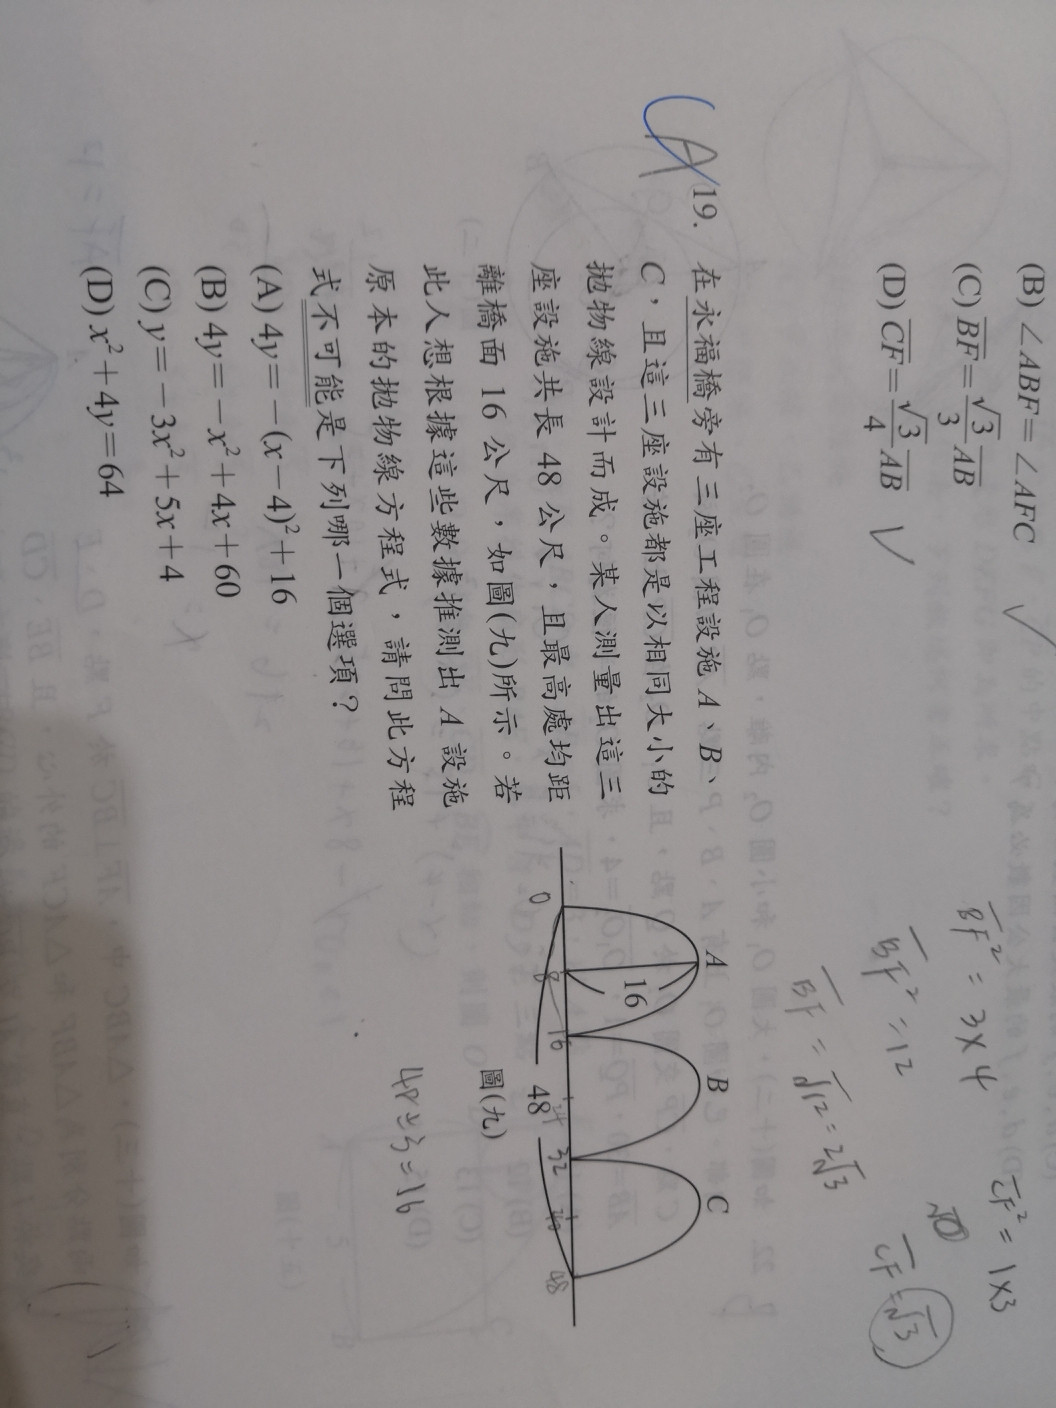 (B) ∠ABF=∠AFC
(C) BF=√3/3 AB
(D) CF=√3/4 AB
BF² = 3×4
BF² = 12
BF = √12 = 2√3
CF² = 1×3
CF = √3
A
19. 在永福橋旁有三座工程設施 A、B、
C,且這三座設施都是以相同大小的
拋物線設計而成。某人測量出這三
座設施共長 48 公尺,且最高處均距
離橋面 16 公尺,如圖(九)所示。若
此人想根據這些數據推測出 A 設施
原本的拋物線方程式,請問此方程
式不可能是下列哪一個選項?
(A) 4y=-(x-4)²+16
(B) 4y=-x²+4x+60
(C) y=-3x²+5x+4
(D) x²+4y=64
A B C
16
0 8 16 24 32 40 48
48
圖(九)
48÷3=16